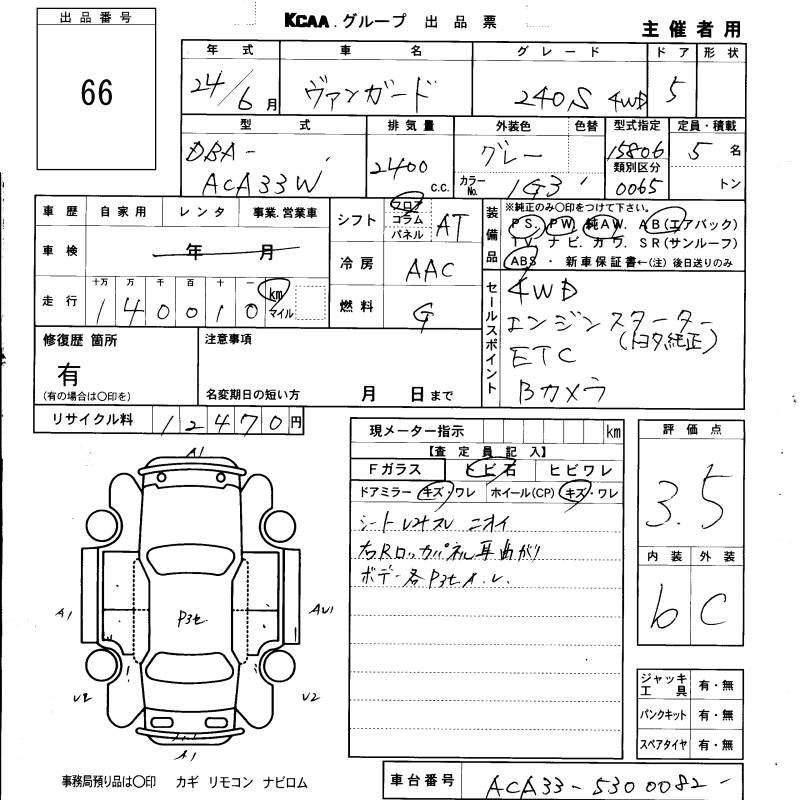 出品番号
66
KCAA グループ 出品票
主催者用
年式 車名 グレード ドア 形状
24/6月 ヴァンガード 240S 4WD 5
型式 排気量 外装色 色替 型式指定 定員・積載
DBA-
ACA33W
2400 c.c.
グレー
カラーNo. 1G3
15806
類別区分
0065
5 名
トン
車歴 自家用 レンタ 事業.営業車
車検 年 月
走行 十万 万 千 百 十 一
1 4 0 0 1 0 km マイル
シフト フロア コラム パネル AT
冷房 AAC
燃料 G
装備品
※純正のみ○印をつけて下さい。
PS. PW. 純AW. AB(エアバック)
TV. ナビ. カワ. SR(サンルーフ)
ABS ・ 新車保証書←(注) 後日送りのみ
セールスポイント
4WD
エンジンスターター
(トヨタ純正)
ETC
Bカメラ
修復歴 箇所
有
(有の場合は○印を)
注意事項
名変期日の短い方 月 日まで
リサイクル料 12470 円
現メーター指示 km
【査定員記入】
Fガラス トビ石 ヒビワレ
ドアミラー キズ・ワレ ホイール(CP) キズ・ワレ
シートレスレ ニオイ
右Rロッカパネル耳曲がり
ボデー各P3セA.U.
評価点
3.5
内装 外装
b C
ジャッキ工具 有・無
パンクキット 有・無
スペアタイヤ 有・無
A1
A1
AU1
P3セ
U2
U2
A1
事務局預り品は○印 カギ リモコン ナビロム
車台番号 ACA33-5300082-